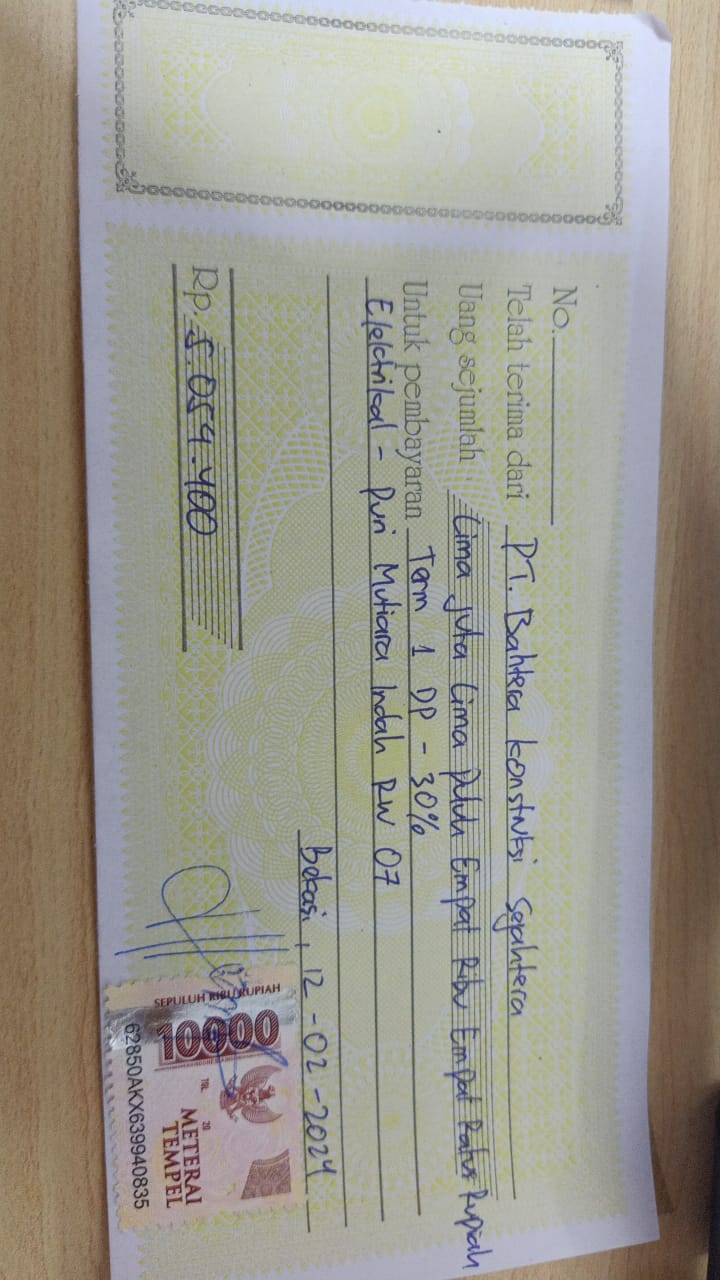 No.
Telah terima dari PT. Bahtera Konstruksi Sejahtera
Uang sejumlah Lima juta Lima Puluh Empat Ribu Empat Ratus Rupiah
Untuk pembayaran Term 1 DP - 30%
Elektrikal - Puri Mutiara Indah RW 07
Rp. 5.054.400
Bekasi, 12 - 02 - 2024
SEPULUH RIBU RUPIAH
10000
TGL. 20
METERAI
TEMPEL
62850AKX639940835